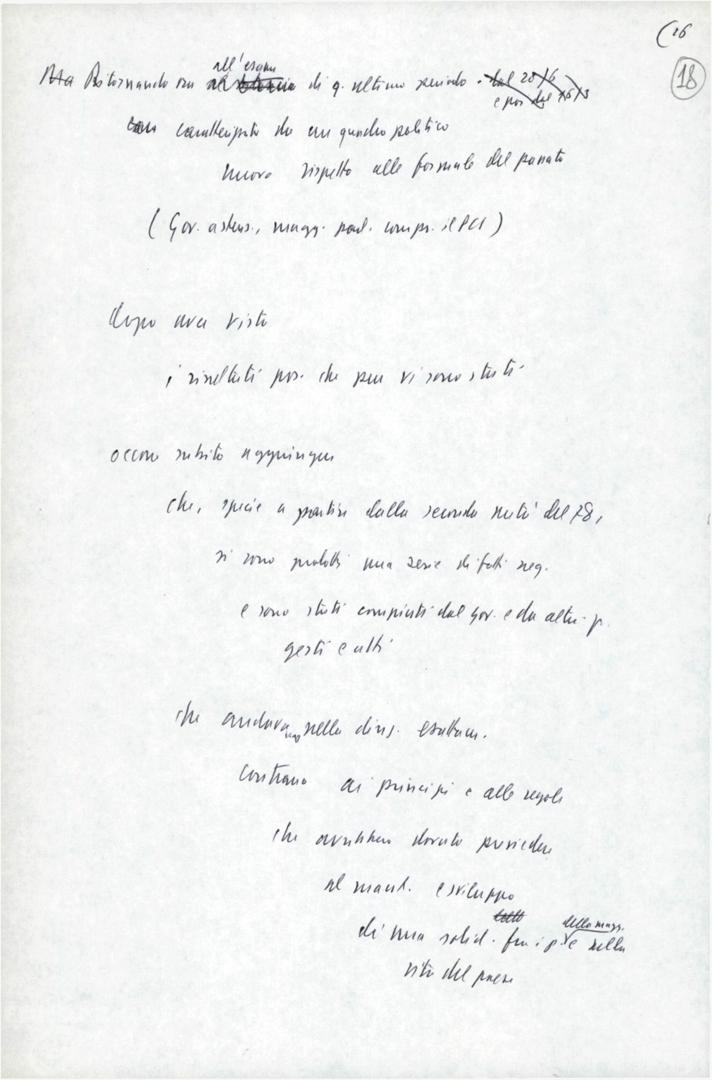 (26
18
Ma Ritornando ora al bilancio all'esame di q. ultimo periodo - dal 20/6
e poi dal
caratterizzato da un quadro politico
nuovo rispetto alle formule del passato
(Gov. astens., magg. parl. compr. il PCI)
dopo aver visto
i risultati pos. che pur vi sono stati
occorre subito aggiungere
che, specie a partire dalla seconda metà del 78,
si sono prodotti una serie di fatti neg.
e sono stati compiuti dal gov. e da altri p.
gesti e atti
che andavano nella direz. esattam.
contraria ai principi e alle regole
che avrebbero dovuto presiedere
al mant. e sviluppo
di una solid. tutto fra i p. della magg. e nella
vita del paese